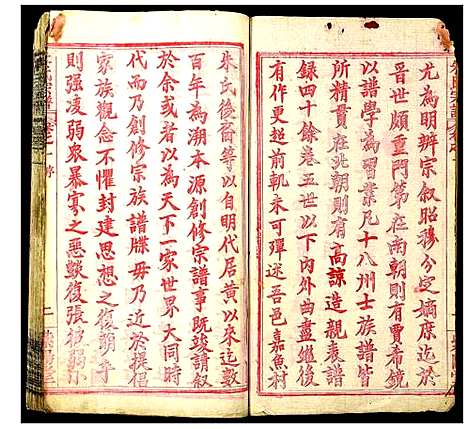 尤為明辨宗敘昭穆分定嫡庶迄於
晋世頗重門第在南朝則有賈希鏡
以譜學為習業凡十八州士族譜皆
所精賣在北朝則有高諒造親表譜
錄四十餘卷五世以下內外曲盡繼後
有作更超前軌未可殫述吾邑嘉魚村
朱氏後裔等以自明代居黃以來迄數
百年為溯本源創修宗譜事既竣請敘
於余或有以為天下一家世界大同時
代而乃創修宗族譜牒毋乃近於提倡
家族觀念不懼封建思想之復萌乎
則强凌弱眾暴寡之惡燄復張扐弱小